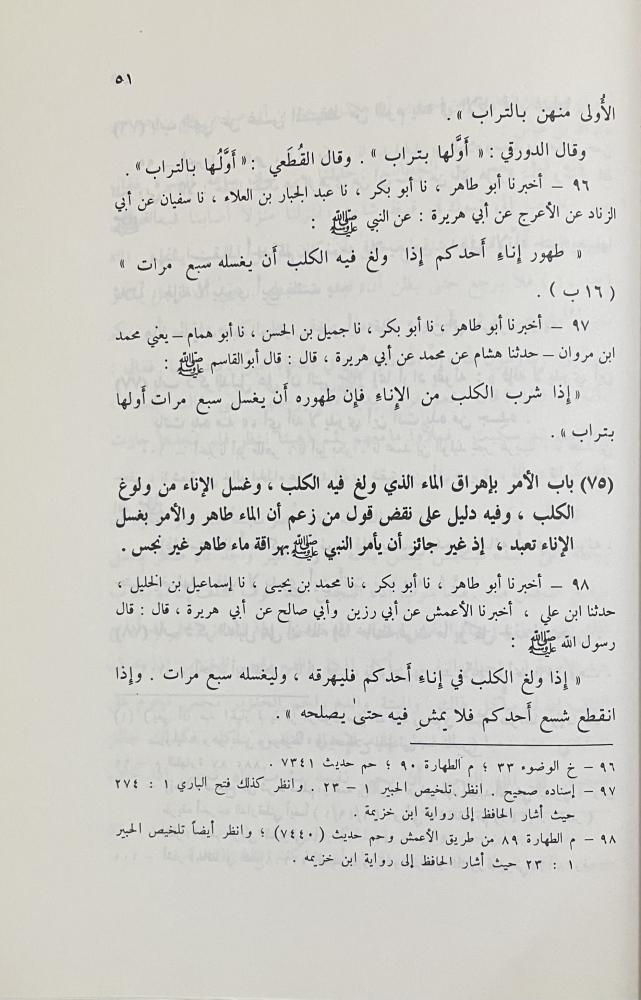 ٥١
الأُولى منهن بالتراب » .
وقال الدورقي : « أَوَّلها بتراب » . وقال القُطَعي : « أَوَّلُها بالتراب » .
٩٦ – أخبرنا أبو طاهر ، نا أبو بكر ، نا عبد الجبار بن العلاء ، نا سفيان عن أبي
الزناد عن الأعرج عن أبي هريرة : عن النبي ﷺ :
« طهور إناءِ أَحدكم إذا ولغ فيه الكلب أن يغسله سبع مرات »
( ١٦ ب ) .
٩٧ – أخبرنا أبو طاهر ، نا أبو بكر ، نا جميل بن الحسن ، نا أبو همام – يعني محمد
ابن مروان – حدثنا هشام عن محمد عن أبي هريرة ، قال : قال أبوالقاسم ﷺ :
« إذا شرب الكلب من الإناءِ فإن طهوره أَن يغسل سبع مرات أولها
بتراب » .
(٧٥) باب الأمر بإهراق الماء الذي ولغ فيه الكلب ، وغسل الإناء من ولوغ
الكلب ، وفيه دليل على نقض قول من زعم أن الماء طاهر والأمر بغسل
الإناء تعبد ، إذ غير جائز أن يأمر النبي ﷺ بهراقة ماء طاهر غير نجس .
٩٨ – أخبرنا أبو طاهر ، نا أبو بكر ، نا محمد بن يحيى ، نا إسماعيل بن الخليل ،
حدثنا ابن علي ، أخبرنا الأعمش عن أبي رزين وأبي صالح عن أبي هريرة ، قال : قال
رسول الله ﷺ :
« إذا ولغ الكلب في إناءِ أَحدكم فليهرقه ، وليغسله سبع مرات . وإذا
انقطع شسع أَحدكم فلا يمش فيه حتىٰ يصلحه » .
٩٦ – خ الوضوء ٣٣ ؛ م الطهارة ٩٠ ؛ حم حديث ٧٣٤١ .
٩٧ – إسناده صحيح . انظر تلخيص الحبير ١ – ٢٣ . وانظر كذلك فتح الباري ١ : ٢٧٤
حيث أشار الحافظ إلى رواية ابن خزيمة .
٩٨ – م الطهارة ٨٩ من طريق الأعمش وحم حديث (٧٤٤٠) ؛ وانظر أيضاً تلخيص الحبير
١ : ٢٣ حيث أشار الحافظ إلى رواية ابن خزيمه .